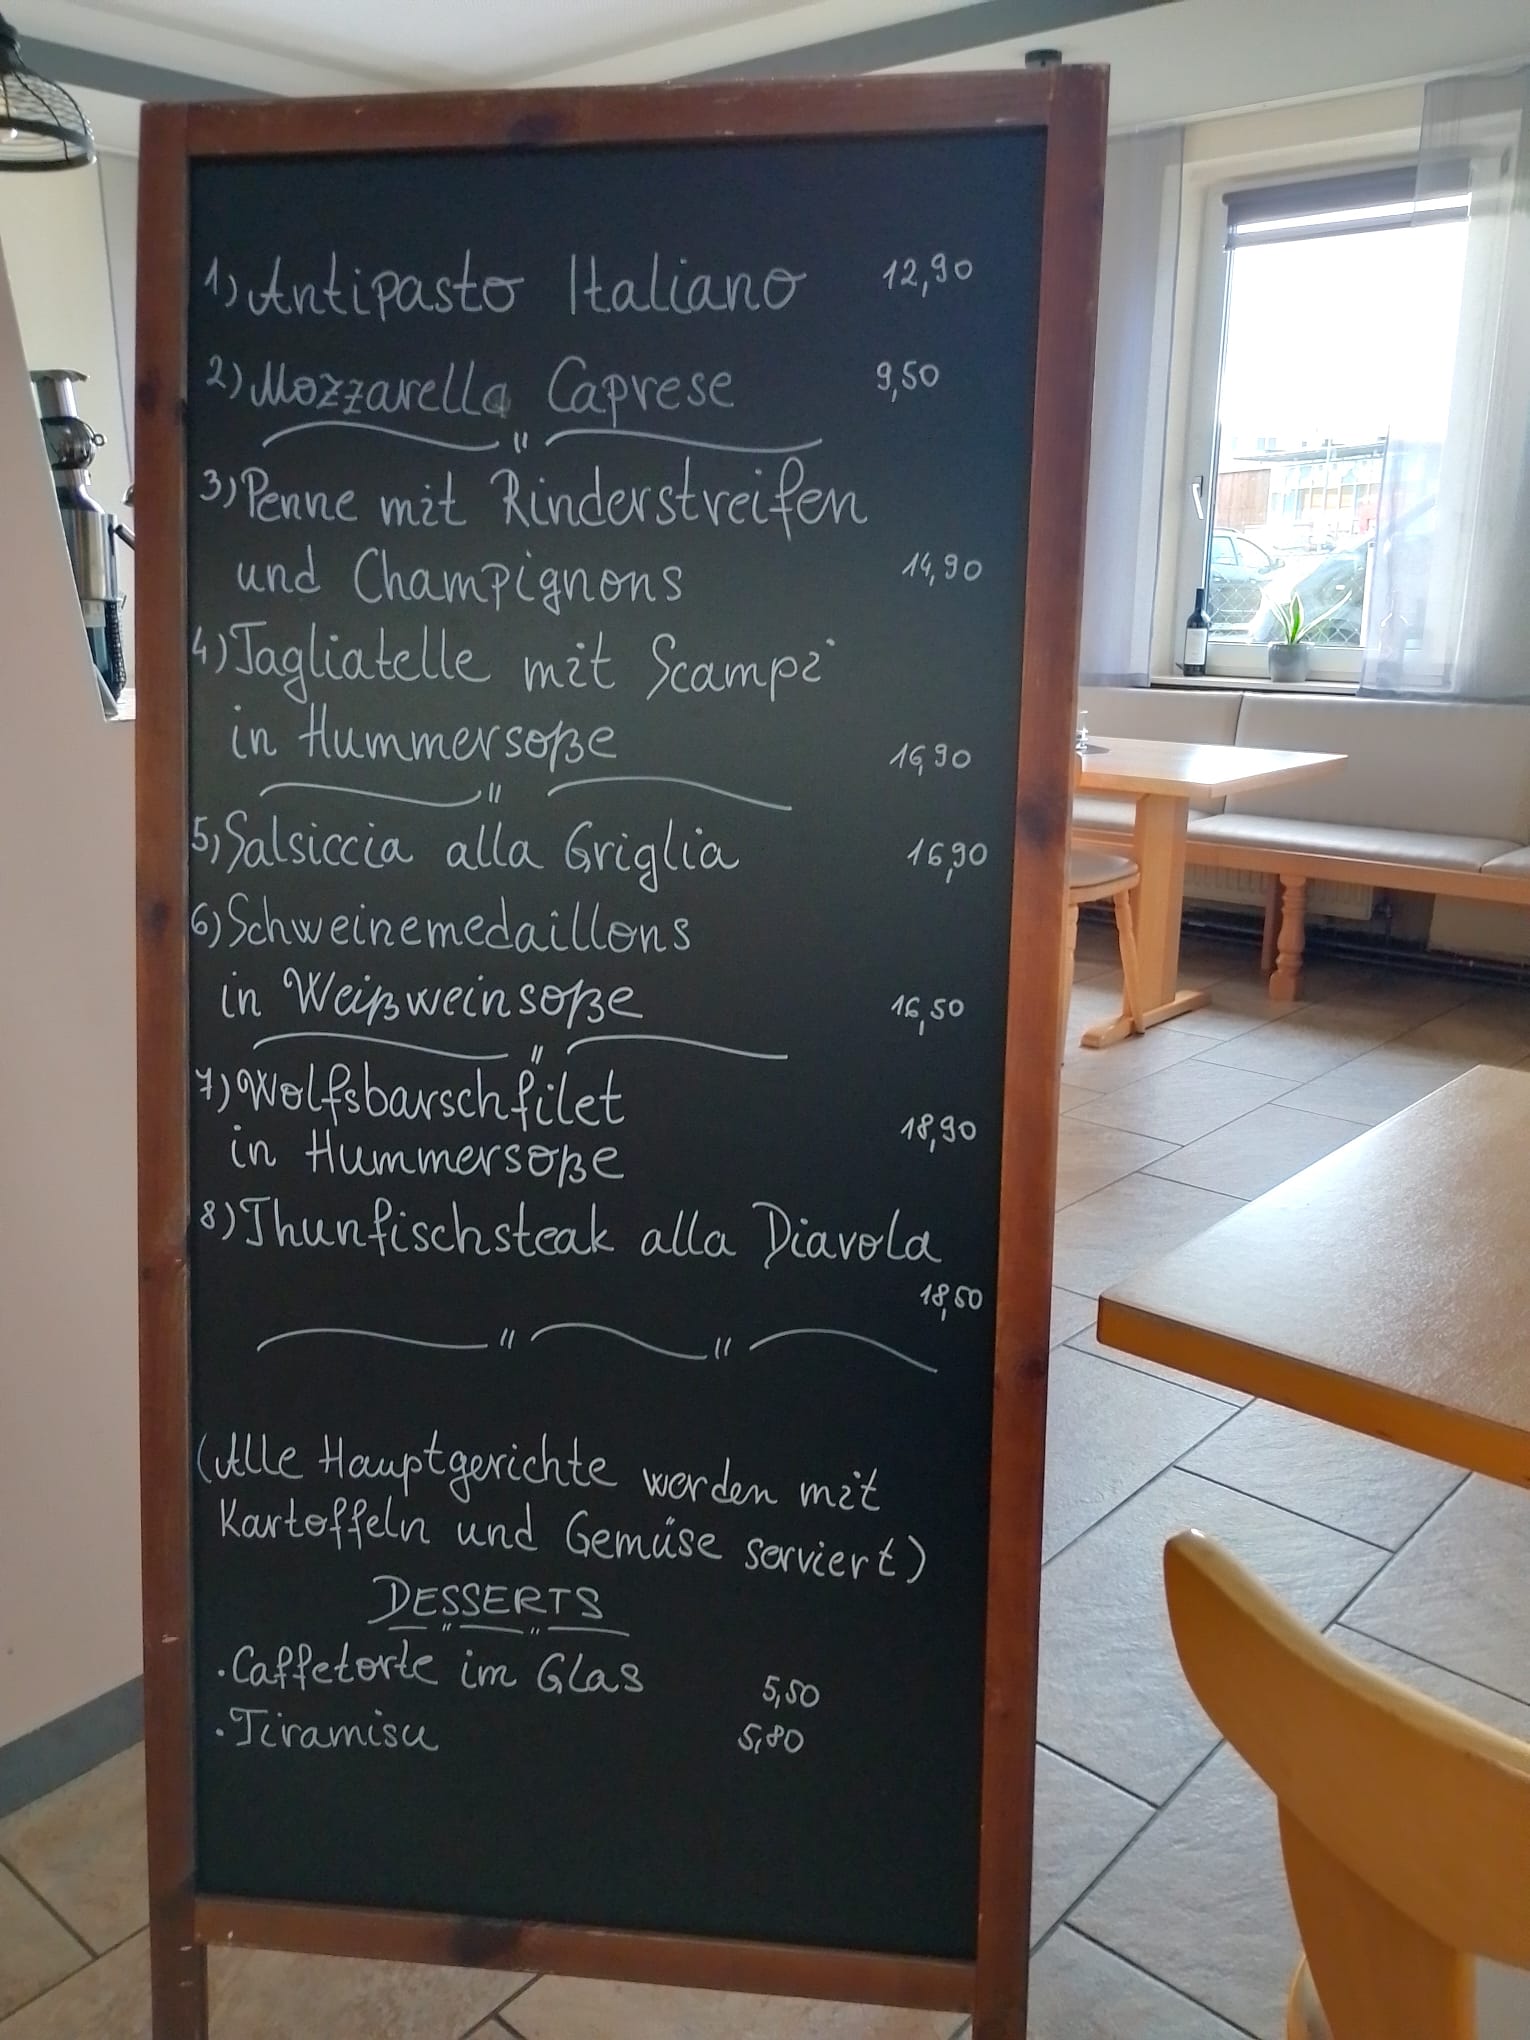 1) Antipasto Italiano 12,90
2) Mozzarella Caprese 9,50
3) Penne mit Rinderstreifen
und Champignons 14,90
4) Tagliatelle mit Scampi
in Hummersoße 16,90
5) Salsiccia alla Griglia 16,90
6) Schweinemedaillons
in Weißweinsoße 16,50
7) Wolfsbarschfilet
in Hummersoße 18,90
8) Thunfischsteak alla Diavola
18,50
(Alle Hauptgerichte werden mit
Kartoffeln und Gemüse serviert)
DESSERTS
· Caffetorte im Glas 5,50
· Tiramisu 5,80